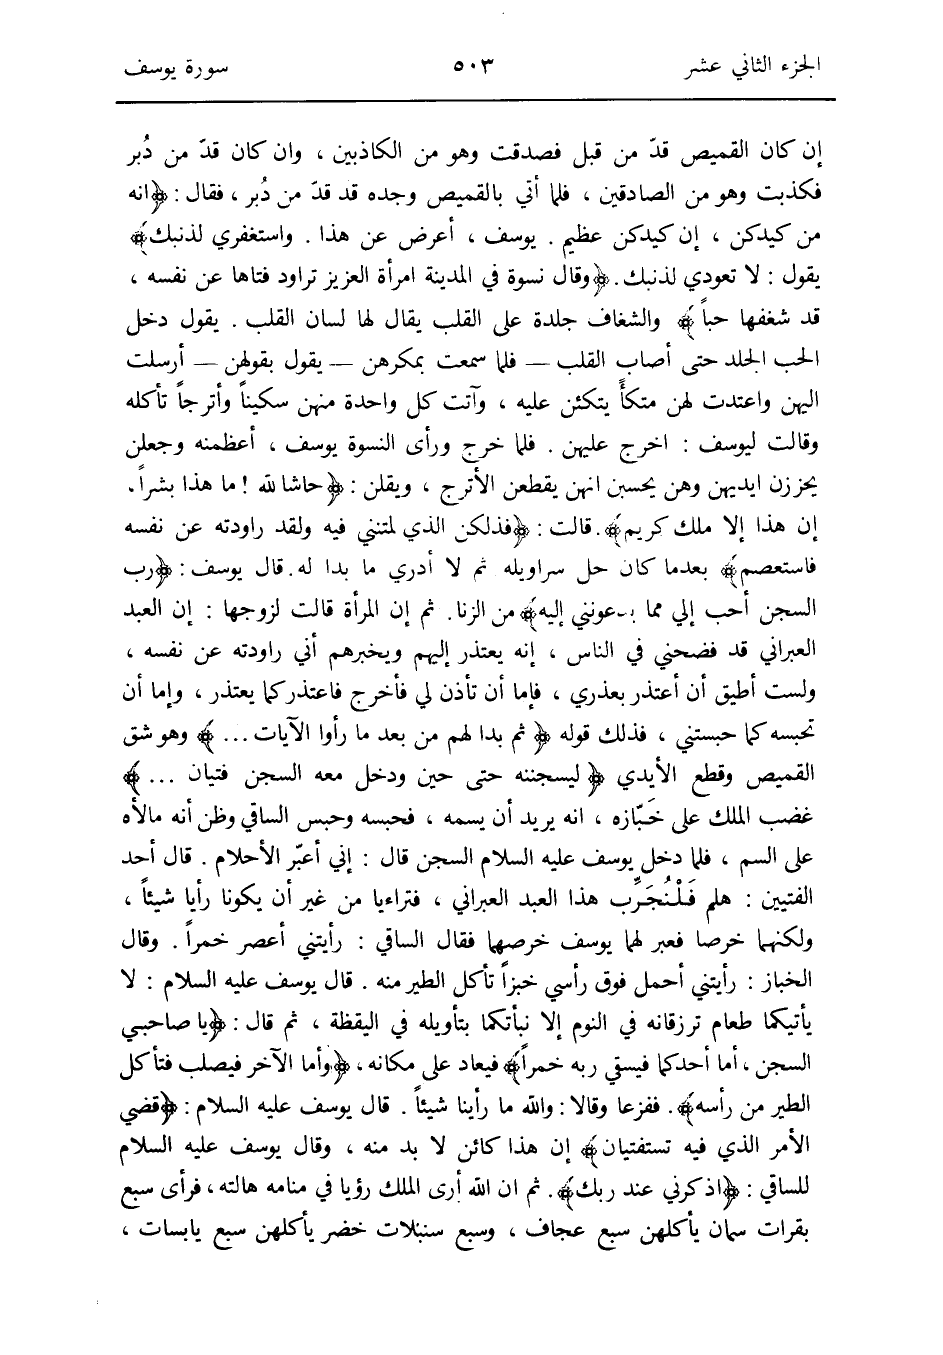 الجزء الثاني عشر ٥٠٣ سورة يوسف
إن كان القميص قدّ من قبل فصدقت وهو من الكاذبين ، وان كان قدّ من دُبر
فكذبت وهو من الصادقين ، فلما أتي بالقميص وجده قد قدّ من دُبر ، فقال : ﴿انه
من كيدكن ، إن كيدكن عظيم . يوسف ، أعرض عن هذا . واستغفري لذنبك﴾
يقول : لا تعودي لذنبك. ﴿وقال نسوة في المدينة امرأة العزيز تراود فتاها عن نفسه ،
قد شغفها حباً ﴾ والشغاف جلدة على القلب يقال لها لسان القلب . يقول دخل
الحب الجلد حتى أصاب القلب — فلما سمعت بمكرهن — يقول بقولهن — أرسلت
اليهن واعتدت لهن متكأً يتكئن عليه ، وآتت كل واحدة منهن سكيناً وأترجاً تأكله
وقالت ليوسف : اخرج عليهن . فلما خرج ورأى النسوة يوسف ، أعظمنه وجعلن
يحززن ايديهن وهن يحسبن انهن يقطعن الأترج ، ويقلن : ﴿حاشا لله ! ما هذا بشراً.
إن هذا إلا ملك كريم﴾. قالت : ﴿فذلكن الذي لمتنني فيه ولقد راودته عن نفسه
فاستعصم﴾ بعدما كان حل سراويله ثم لا أدري ما بدا له. قال يوسف : ﴿رب
السجن أحب إلي مما يدعونني إليه﴾ من الزنا. ثم إن المرأة قالت لزوجها : إن العبد
العبراني قد فضحني في الناس ، إنه يعتذر إليهم ويخبرهم أني راودته عن نفسه ،
ولست أطيق أن أعتذر بعذري ، فإما أن تأذن لي فأخرج فاعتذر كما يعتذر ، وإما أن
تحبسه كما حبستني ، فذلك قوله ﴿ ثم بدا لهم من بعد ما رأوا الآيات ... ﴾ وهو شق
القميص وقطع الأيدي ﴿ ليسجننه حتى حين ودخل معه السجن فتيان ... ﴾
غضب الملك على خَبّازه ، انه يريد أن يسمه ، فحبسه وحبس الساقي وظن أنه مالأه
على السم ، فلما دخل يوسف عليه السلام السجن قال : إني أعبّر الأحلام . قال أحد
الفتيين : هلم فَلْنُجَرِّب هذا العبد العبراني ، فتراءيا من غير أن يكونا رأيا شيئاً ،
ولكنهما خرصا فعبر لهما يوسف خرصهما فقال الساقي : رأيتني أعصر خمراً . وقال
الخباز : رأيتني أحمل فوق رأسي خبزاً تأكل الطير منه . قال يوسف عليه السلام : لا
يأتيكما طعام ترزقانه في النوم إلا نبأتكما بتأويله في اليقظة ، ثم قال : ﴿يا صاحبي
السجن ، أما أحدكما فيسقي ربه خمراً﴾ فيعاد على مكانه ، ﴿وأما الآخر فيصلب فتأكل
الطير من رأسه﴾. ففزعا وقالا : والله ما رأينا شيئاً . قال يوسف عليه السلام : ﴿قضي
الأمر الذي فيه تستفتيان﴾ إن هذا كائن لا بد منه ، وقال يوسف عليه السلام
للساقي : ﴿اذكرني عند ربك﴾. ثم ان الله أرى الملك رؤيا في منامه هالته ، فرأى سبع
بقرات سمان يأكلهن سبع عجاف ، وسبع سنبلات خضر يأكلهن سبع يابسات ،